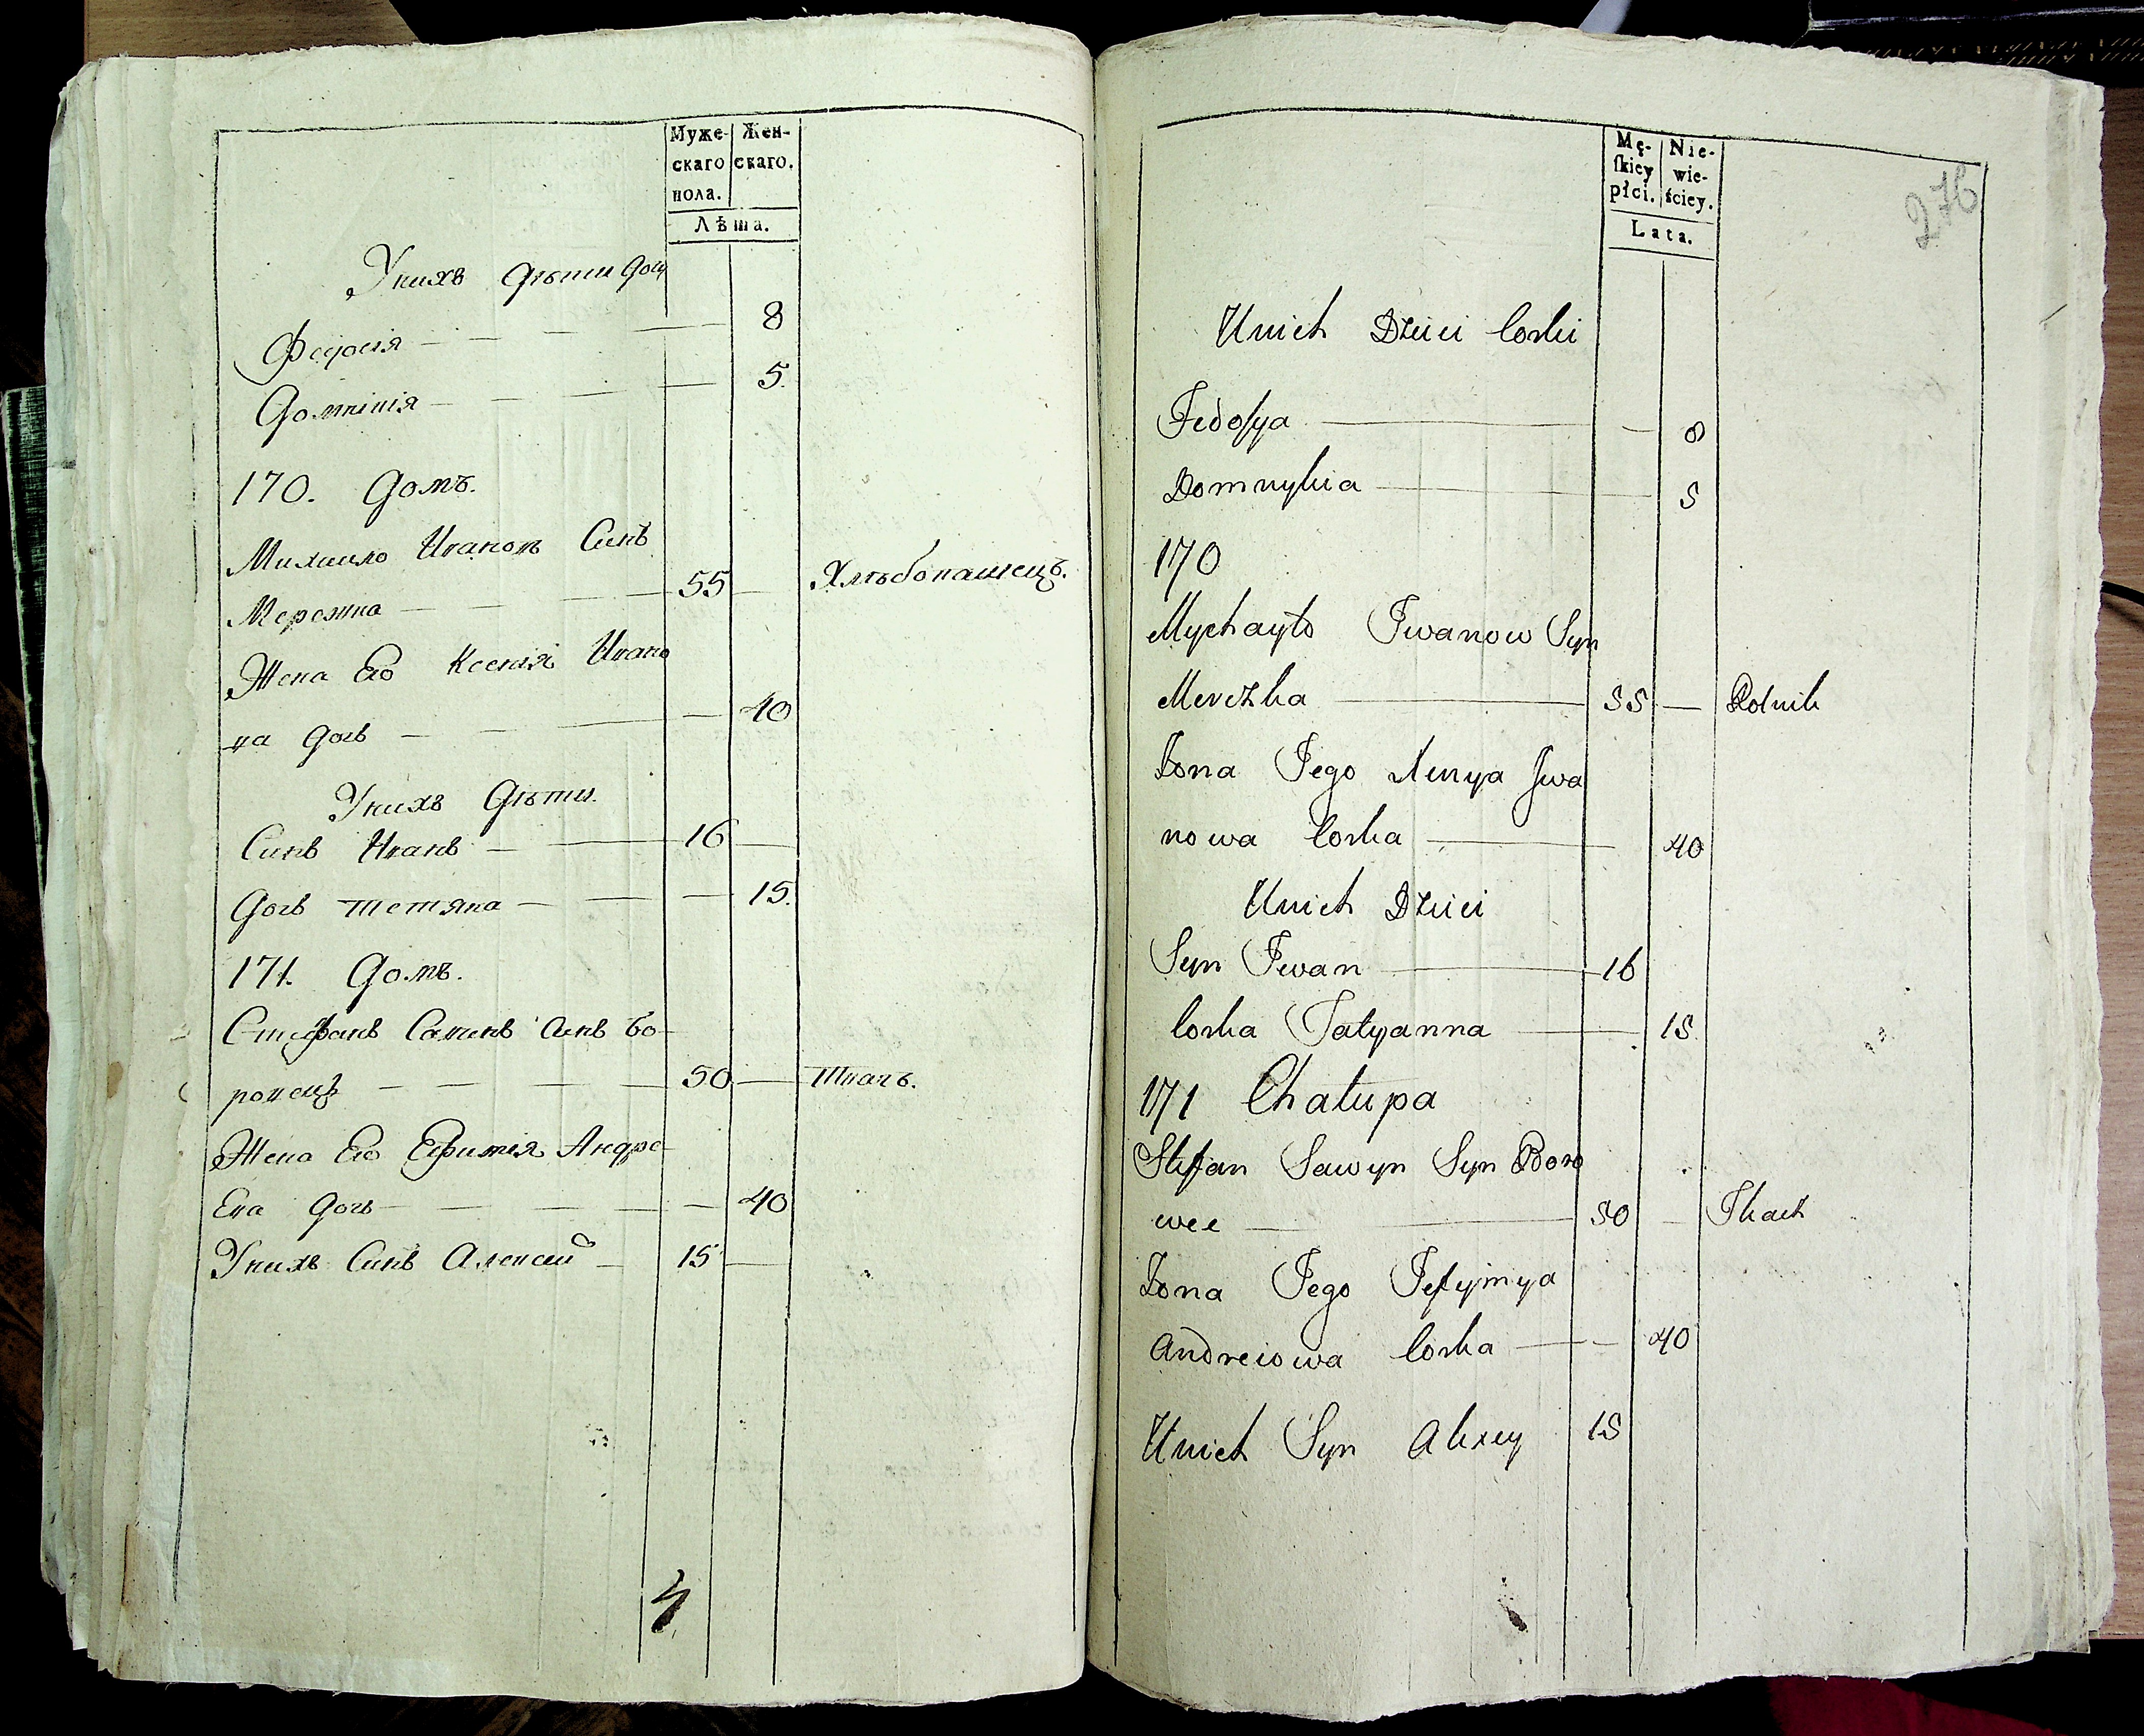 Муже-
скаго
пола.
Жен-
скаго.
Лѣта.
Унихъ Дѣти Доч
Федосія 8
Домникія 5.
170. Домъ.
Михайло Ивановъ Синъ
Мережка 55 Хлѣбопашецъ.
Жена Его Ксенія Ивано
ва Дочь 40
Унихъ Дѣти.
Синъ Иванъ 16
Дочь Тетяна 15.
171. Домъ.
Стефанъ Савинъ Синъ Бо-
ровецъ 50 Ткачъ.
Жена Его Ефимія Андре-
Ева Дочь 40
Унихъ Синъ Алексей 15
4
Mę-
ſkiey
płci.
Nie-
wie-
ściey.
Lata.
276
Unich Dzieci Corki
Fedoſya 8
Domnykia 5
170
Mychayło Iwanow Syn
Merezka 55 Rolnik
Zona Jego Xenya Iwa
nowa Corka 40
Unich Dzieci
Syn Iwan 16
Corka Tatyanna 15.
171 Chałupa
Stefan Sawyn Syn Boro
wec 50 Tkacz
Zona Jego Jefymya
Andreiowa Corka 40
Unich Syn Alexey 15